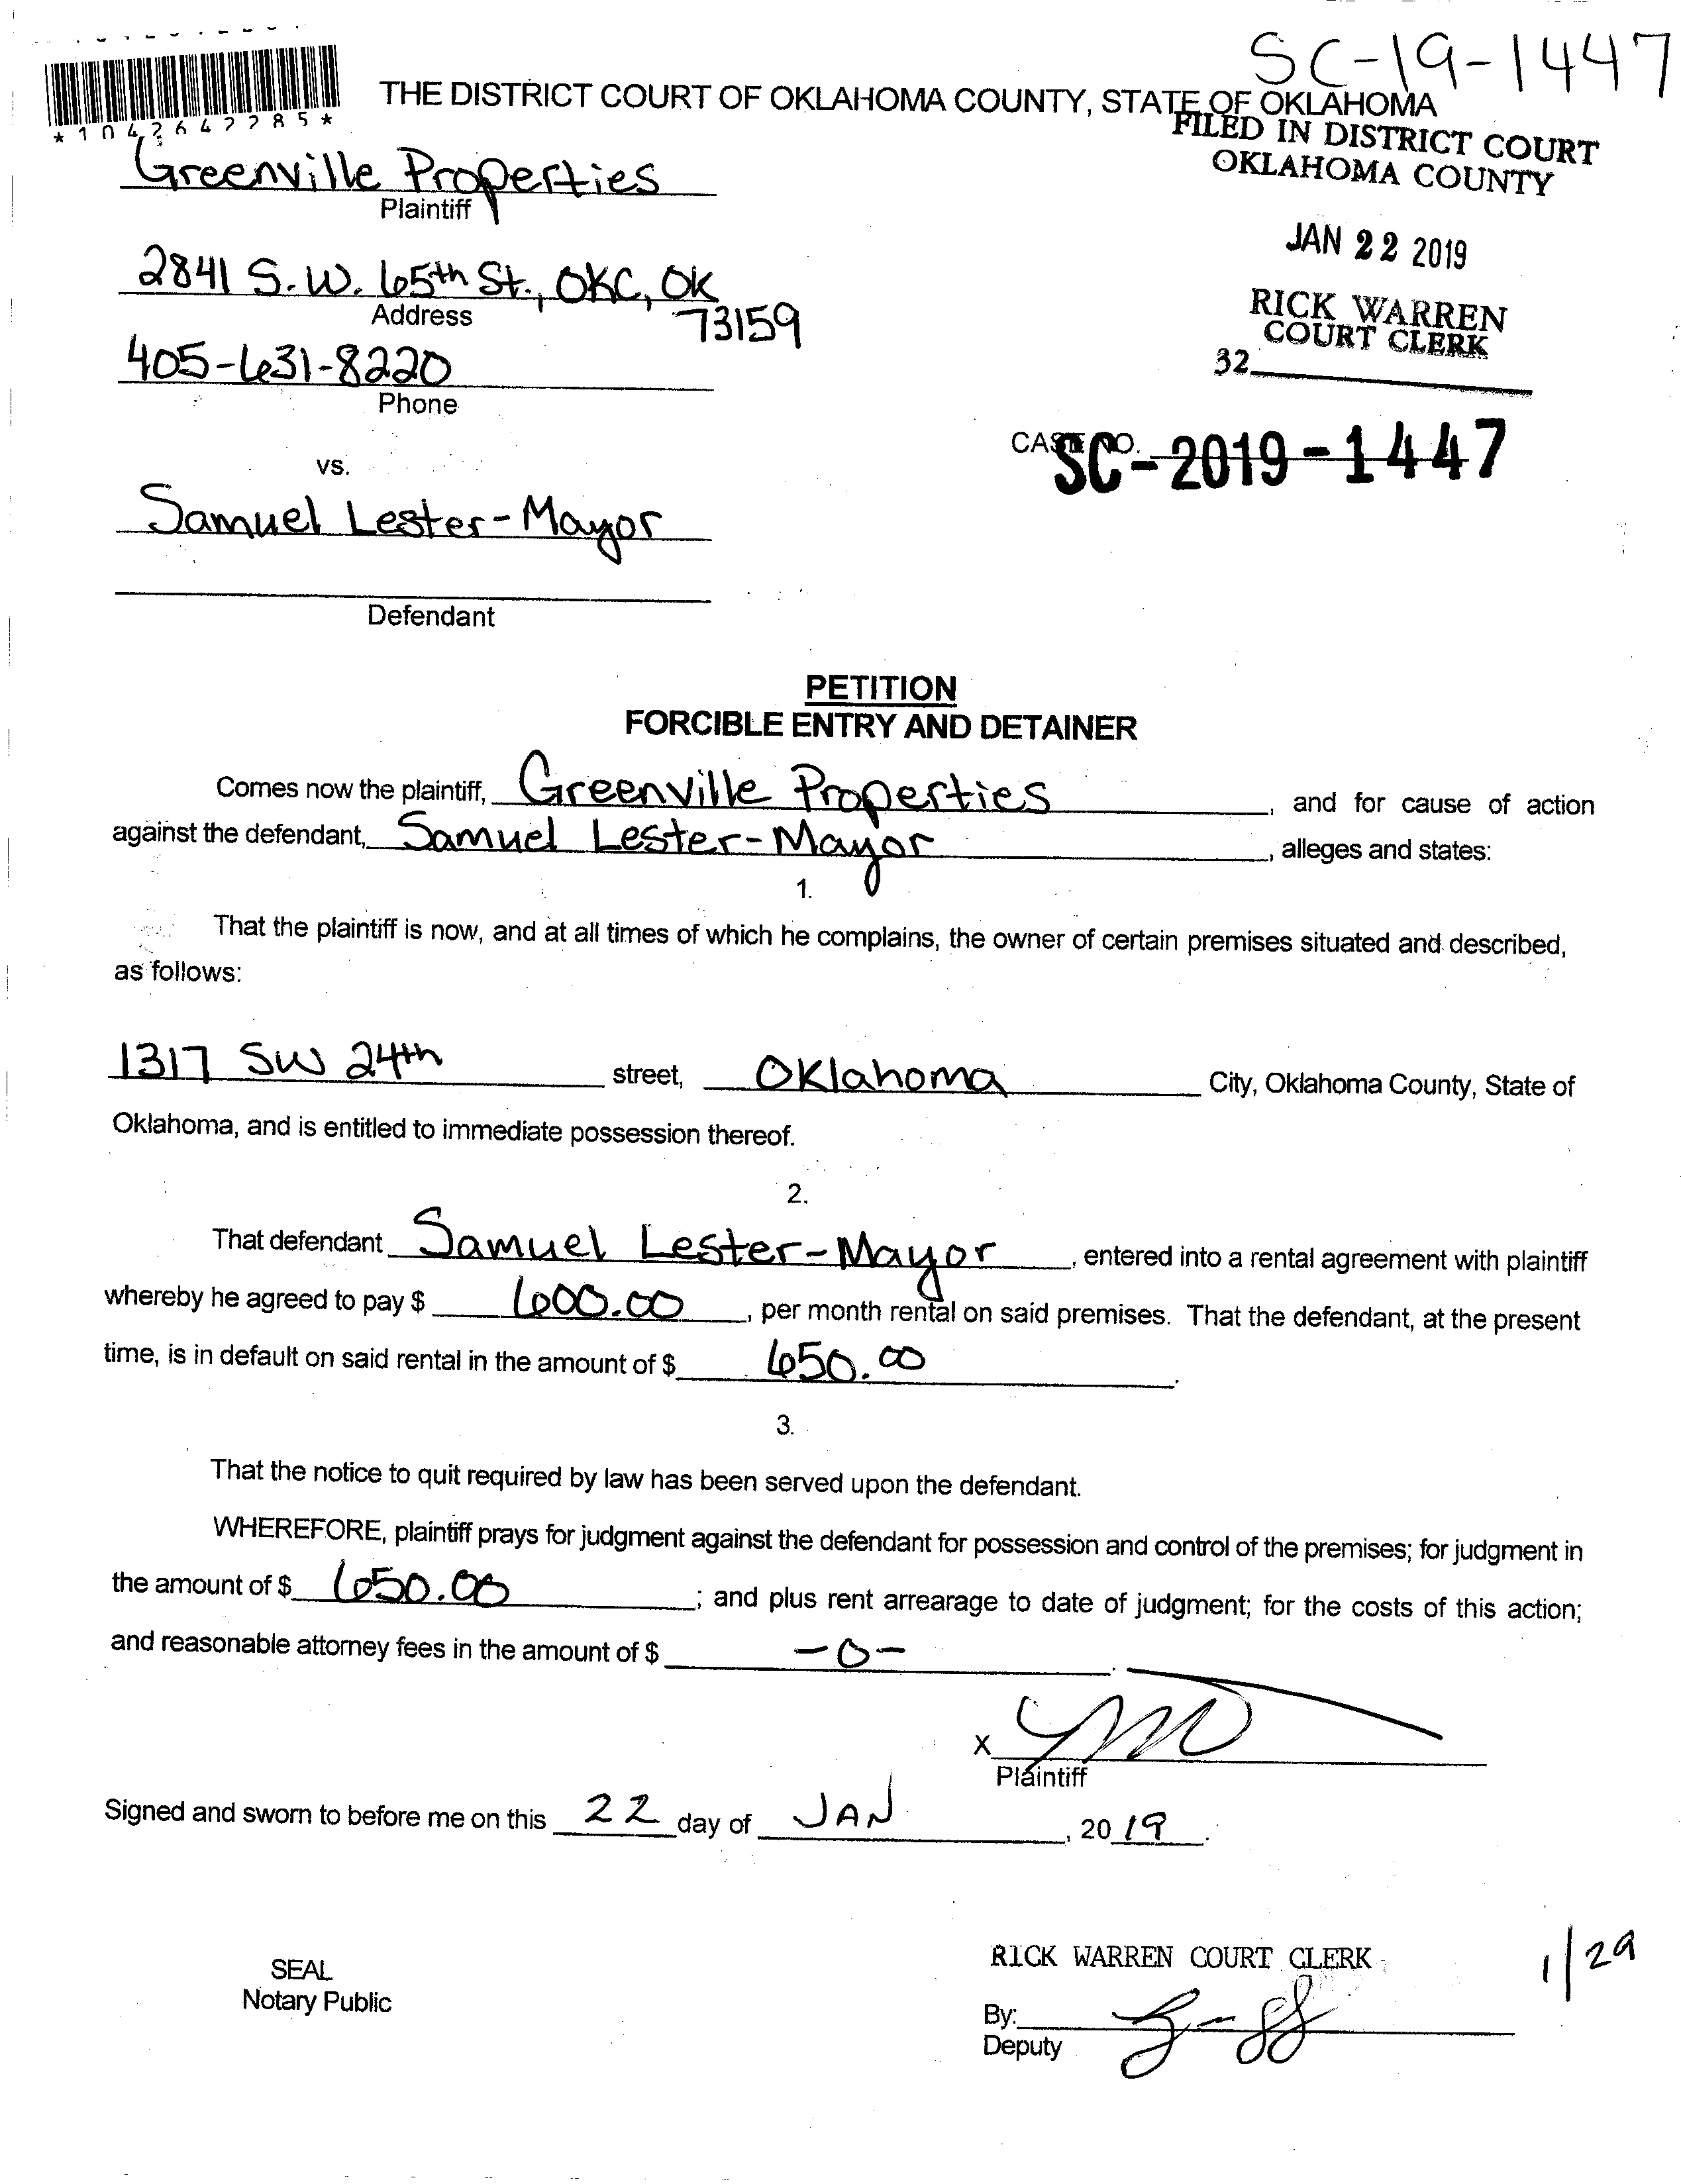 SC-19-1447
*1042647785*
THE DISTRICT COURT OF OKLAHOMA COUNTY, STATE OF OKLAHOMA
FILED IN DISTRICT COURT
OKLAHOMA COUNTY
Greenville Properties
Plaintiff
JAN 22 2019
2841 S.W. 65th St., OKC, OK
73159
Address
RICK WARREN
COURT CLERK
32
405-631-8220
Phone
CASE NO. SC-2019-1447
vs.
Samuel Lester-Mayor
Defendant
PETITION
FORCIBLE ENTRY AND DETAINER
Comes now the plaintiff, Greenville Properties, and for cause of action
against the defendant, Samuel Lester-Mayor, alleges and states:
1.
That the plaintiff is now, and at all times of which he complains, the owner of certain premises situated and described,
as follows:
1317 SW 24th street, Oklahoma City, Oklahoma County, State of
Oklahoma, and is entitled to immediate possession thereof.
2.
That defendant Samuel Lester-Mayor, entered into a rental agreement with plaintiff
whereby he agreed to pay $ 600.00, per month rental on said premises. That the defendant, at the present
time, is in default on said rental in the amount of $ 650.00.
3.
That the notice to quit required by law has been served upon the defendant.
WHEREFORE, plaintiff prays for judgment against the defendant for possession and control of the premises; for judgment in
the amount of $ 650.00; and plus rent arrearage to date of judgment; for the costs of this action;
and reasonable attorney fees in the amount of $ -0-.
X
Plaintiff
Signed and sworn to before me on this 22 day of JAN, 2019.
SEAL
Notary Public
RICK WARREN COURT CLERK
1/29
By:
Deputy